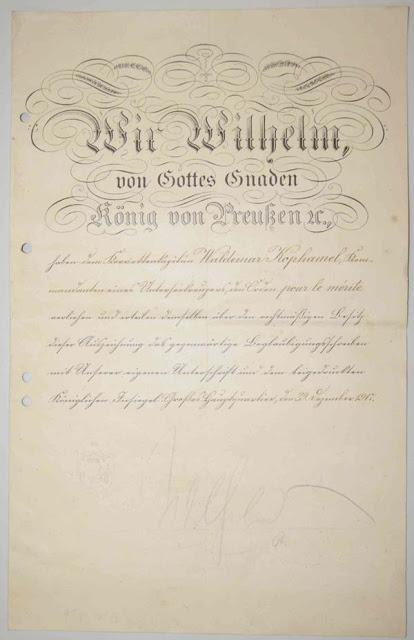 Wir Wilhelm,
von Gottes Gnaden
König von Preußen ꝛc.,
haben dem Korvettenkapitän Waldemar Kophamel, Kom-
mandanten eines Unterseekreuzers, den Orden pour le mérite
verliehen und erteilen demselben über den rechtmäßigen Besitz
dieser Auszeichnung das gegenwärtige Beglaubigungsschreiben
mit Unserer eigenen Unterschrift und dem beigedruckten
Königlichen Insiegel. Großes Hauptquartier, den 29. Dezember 1917.
Wilhelm
R.